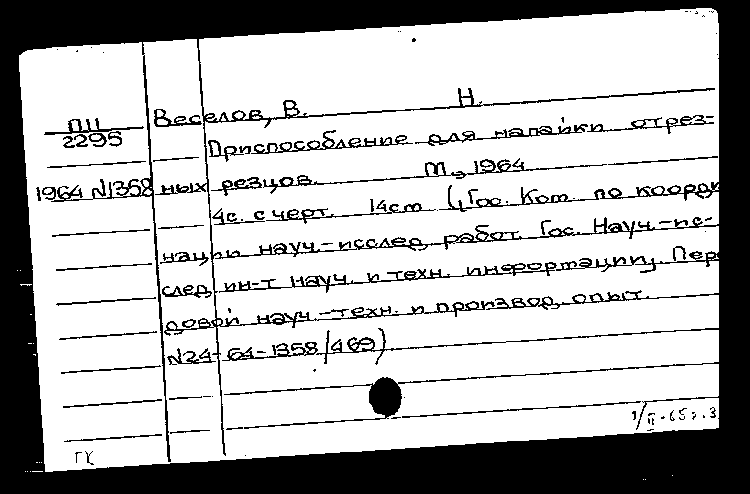 П11
2295
1964 N1358
Веселов, В. Н.
Приспособление для напайки отрез-
ных резцов. М., 1964
4с. с черт. 14см (Гос. Ком по коорди
нации науч.-исслед. работ. Гос. Науч.-ис-
след. ин-т науч. и техн. информации. Пере
довой науч.-техн. и производ. опыт.
N24-64-1358/469)
ГК